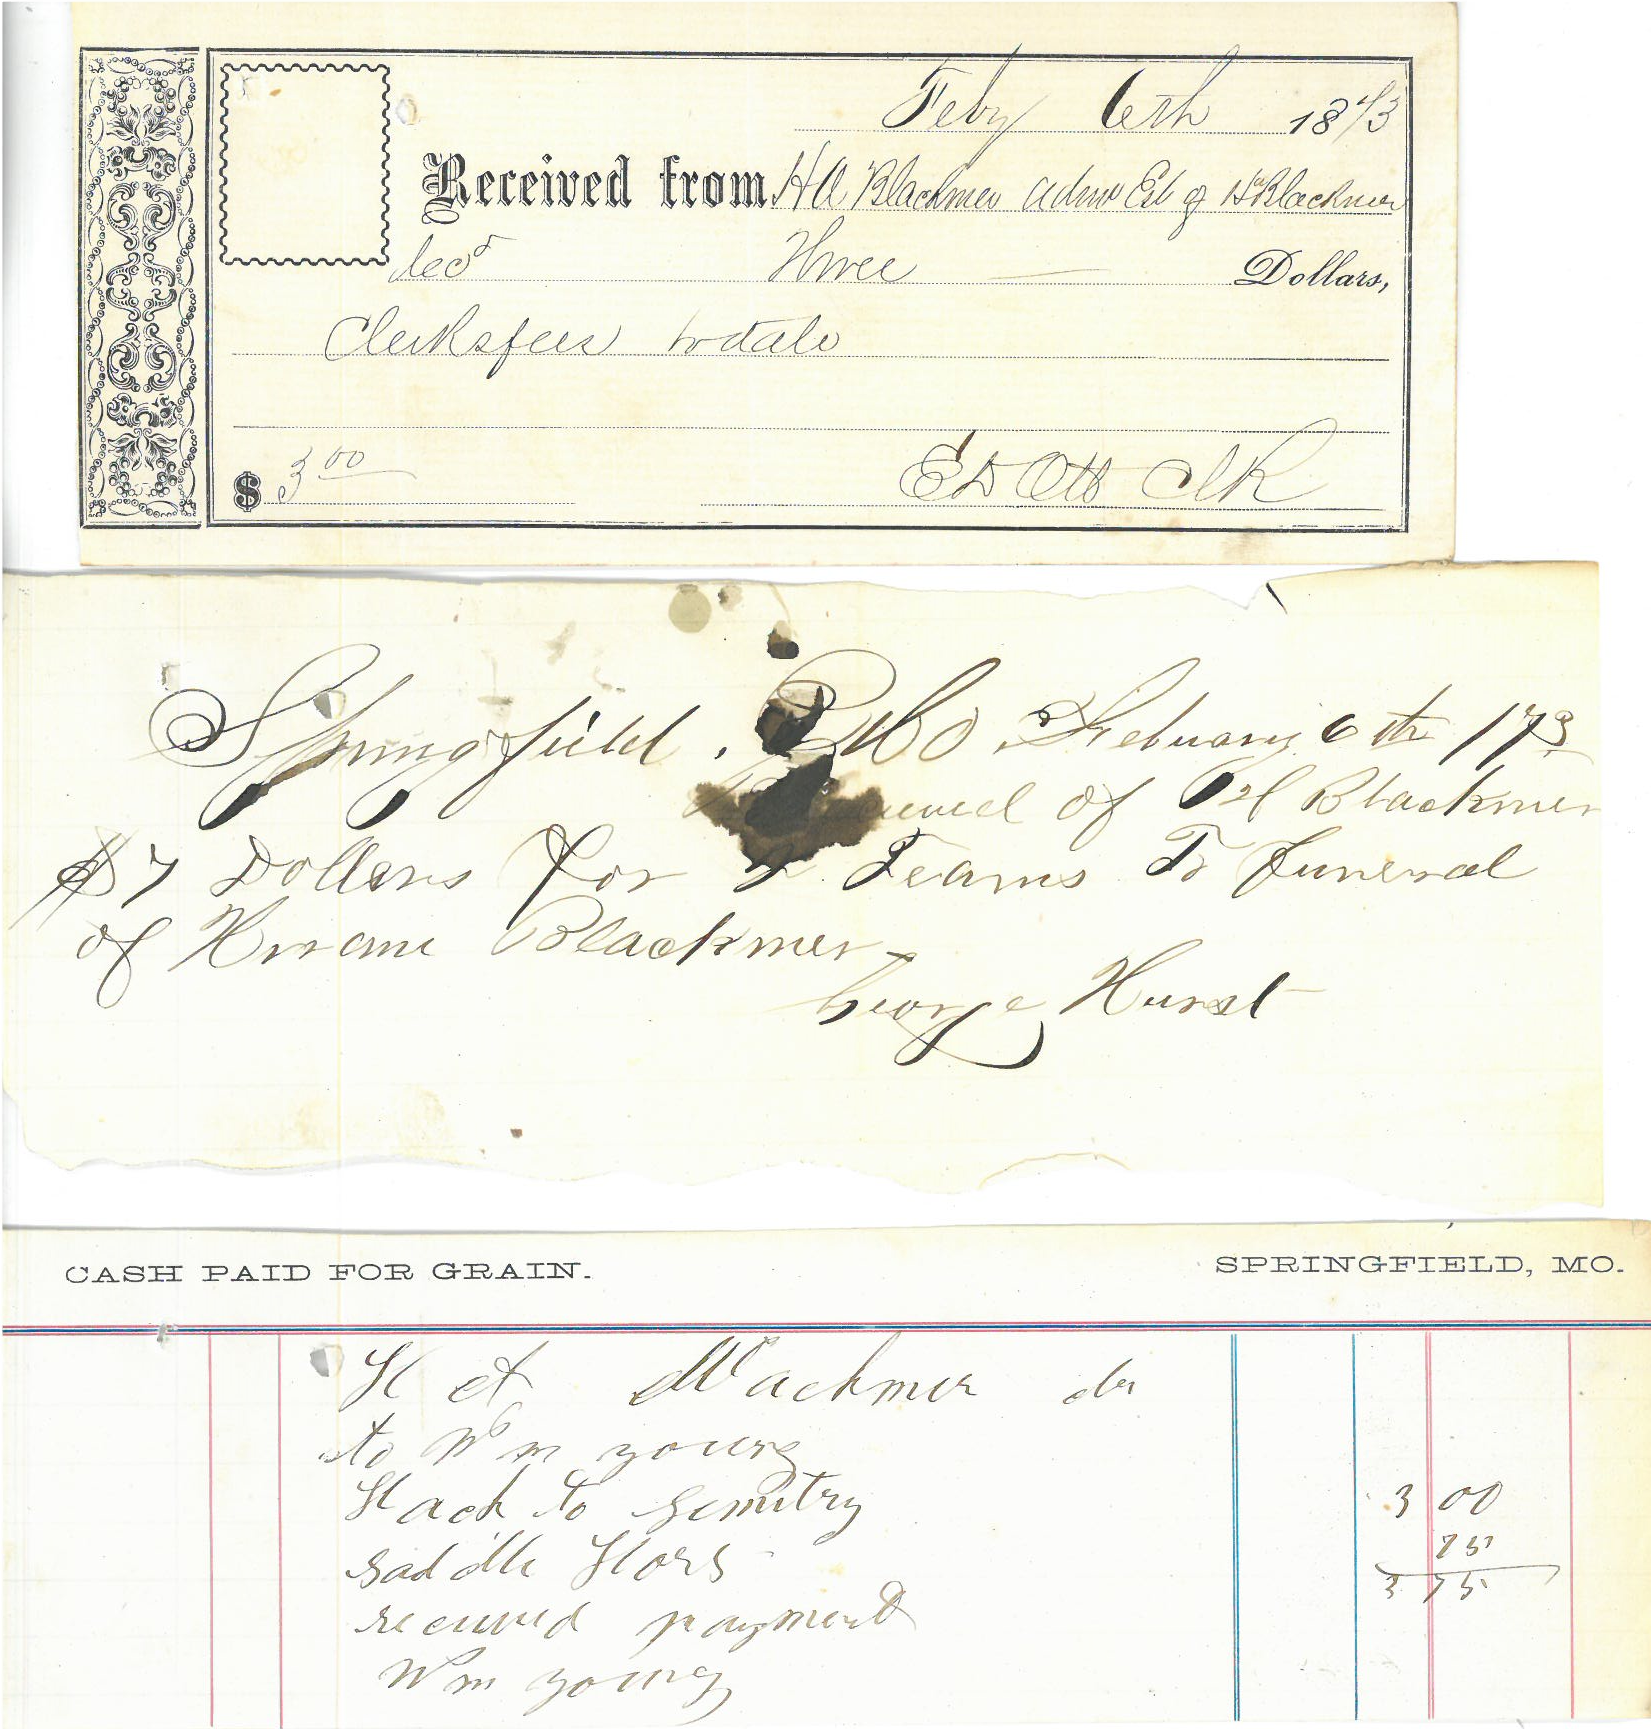 Feby 6th 1873
Received from H A Blackmer admr Est of H Blackmer
decd Three Dollars,
Clerks fees to date
$ 3.00 E D Ott Clk
Springfield. Mo. Febuary 6th 173
Received of H Blackmer
$7 Dollars for 2 Teams To funeral
of Hiram Blackmer
George Hurst
CASH PAID FOR GRAIN. SPRINGFIELD, MO.
H A Blackmer dr
to Wm young
Hack to Semitry 3 00
saddle Hors 75
3 75
received payment
Wm young